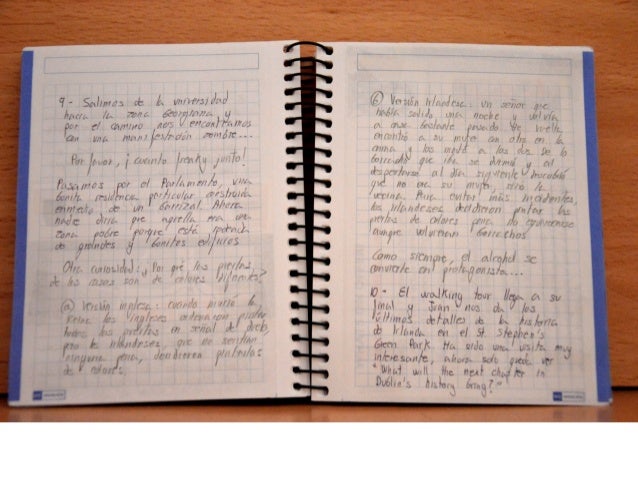 9- Salimos de la universidad
hacia la zona Georgiana y
por el camino nos encontramos
con una manifestación zombie...
Por favor, ¡cuánto freaky junto!
Pasamos por el Parlamento, una
bonita residencia particular construida
enmedio de un barrizal. Ahora
nadie diría que aquella era una
zona pobre porque está rodeada
de grandes y bonitos edificios
Otra curiosidad: ¿Por qué las puertas
de las casas son de colores diferentes?
ⓐ Versión inglesa: cuando murió la
Reina los ingleses ordenaron pintar
todas las puertas en señal de duelo,
pero los irlandeses, que no sentían
ninguna pena, decidieron pintarlas
de colores.
ⓑ Versión irlandesa: un señor que
había salido una noche y volvía
a casa bastante pasado de vuelta
encontró a su mujer con otro en la
cama y los mató a los dos. Se lo
borracho que iba se durmió y al
despertarse al día siguiente descubrió
que no era su mujer, sino la
vecina. Para evitar más incidentes,
los irlandeses decidieron pintar las
puertas de colores para no equivocarse
aunque volvieran borrachos
Como siempre, el alcohol se
convierte en protagonista...
10- El walking tour llega a su
final y nos da los
últimos detalles de la historia
de Irlanda en el St Stephen's
Green Park. Ha sido una visita muy
interesante, ahora solo queda ver
"What will the next chapter in
Dublin's history bring?"